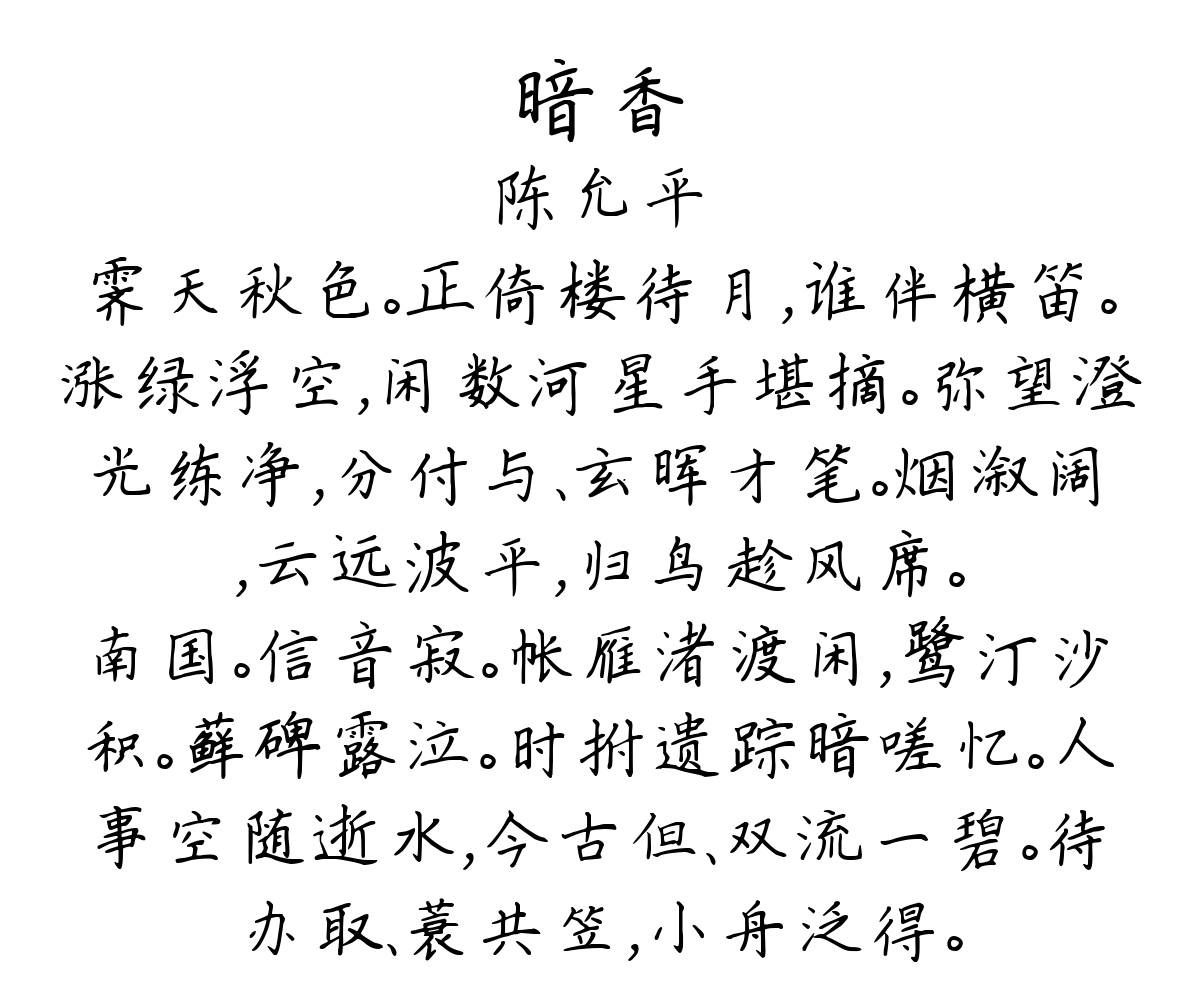 暗香
陈允平
霁天秋色。正倚楼待月,谁伴横笛。
涨绿浮空,闲数河星手堪摘。弥望澄
光练净,分付与、玄晖才笔。烟溆阔
,云远波平,归鸟趁风席。
南国。信音寂。怅雁渚渡闲,鹭汀沙
积。藓碑露泣。时拊遗踪暗嗟忆。人
事空随逝水,今古但、双流一碧。待
办取、蓑共笠,小舟泛得。